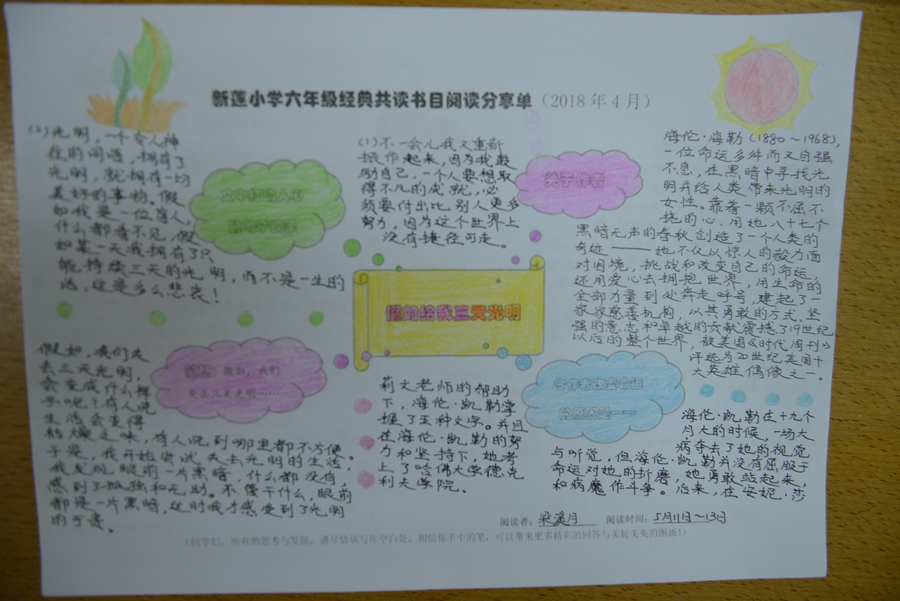 新莲小学六年级经典共读书目阅读分享单（2018年4月）
关于作者
海伦·海勒（1880～1968），
一位命运多舛而又自强
不息，在黑暗中寻找光
明并给人类带来光明的
女性。靠着一颗不屈不
挠的心，用她八十七个
黑暗无声的春秋创造了一个人类的
奇迹——她不仅以惊人的毅力面
对困境，挑战和改变自己的命运，
还用爱心去拥抱世界，用生命的
全部力量到处奔走呼号，建起了一
家家慈善机构，以其勇敢的方式、坚
强的意志和卓越的贡献震撼了19世纪
以后的整个世界，被美国《时代周刊》
评选为20世纪美国十
大英雄偶像之一。
(1)不一会儿我又重新
振作起来，因为我鼓
励自己，一个人要想取
得不凡的成就，必
须要付出比别人更多
努力，因为这个世界上
没有捷径可走。
(2)光明，一个令人神
往的词语，拥有了
光明，就拥有一切
美好的事物。假
如我是一位盲人，
什么都看不见，假
如某一天我拥有了只
能持续三天的光明，而不是一生的
话，这是多么悲哀！
假如给我三天光明
假如，我们
失去三天光明……
假如，我们失
去三天光明，
会变成什么样
子呢？有人说
生活会变得
枯燥乏味，有人说到哪里都不方便。
于是，我开始尝试失去光明的生活，
我发现眼前一片黑暗，什么都没有，
感到了孤独和无助。不管干什么，眼前
都是一片黑暗，这时我才感受到了光明
的可贵。
海伦·凯勒在十九个
月大的时候，一场大
病夺去了她的视觉
与听觉，但海伦·凯勒并没有屈服于
命运对她的折磨，她勇敢站起来，
和病魔作斗争。后来，在安妮·莎
莉文老师的帮助
下，海伦·凯勒学
握了五种文字。并且
在海伦·凯勒的努
力和坚持下，她考
上了哈佛大学德克
利夫学院。
阅读者：梁溪月 阅读时间：5月11日～13日
（同学们，所有的思考与发现，请尽情填写在空白处，相信你手中的笔，可以带来更多精彩的回答与美轮美奂的图画！）